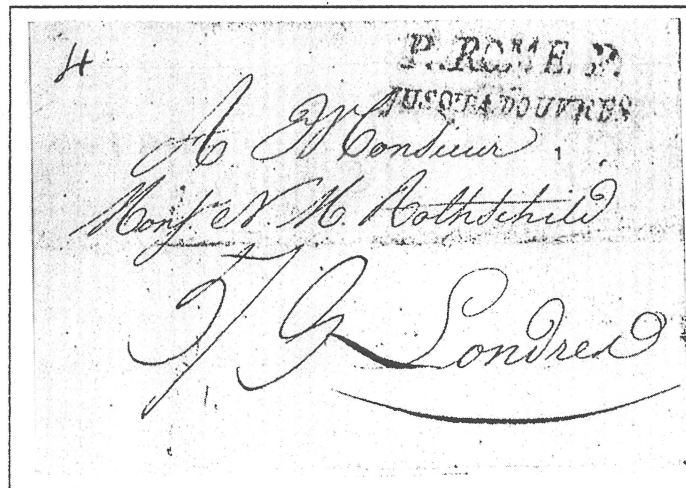 4
P. ROME. P.
JUSQU'A DOUVRES
A Monsieur
Mons.r N M. Rothschild
Londres